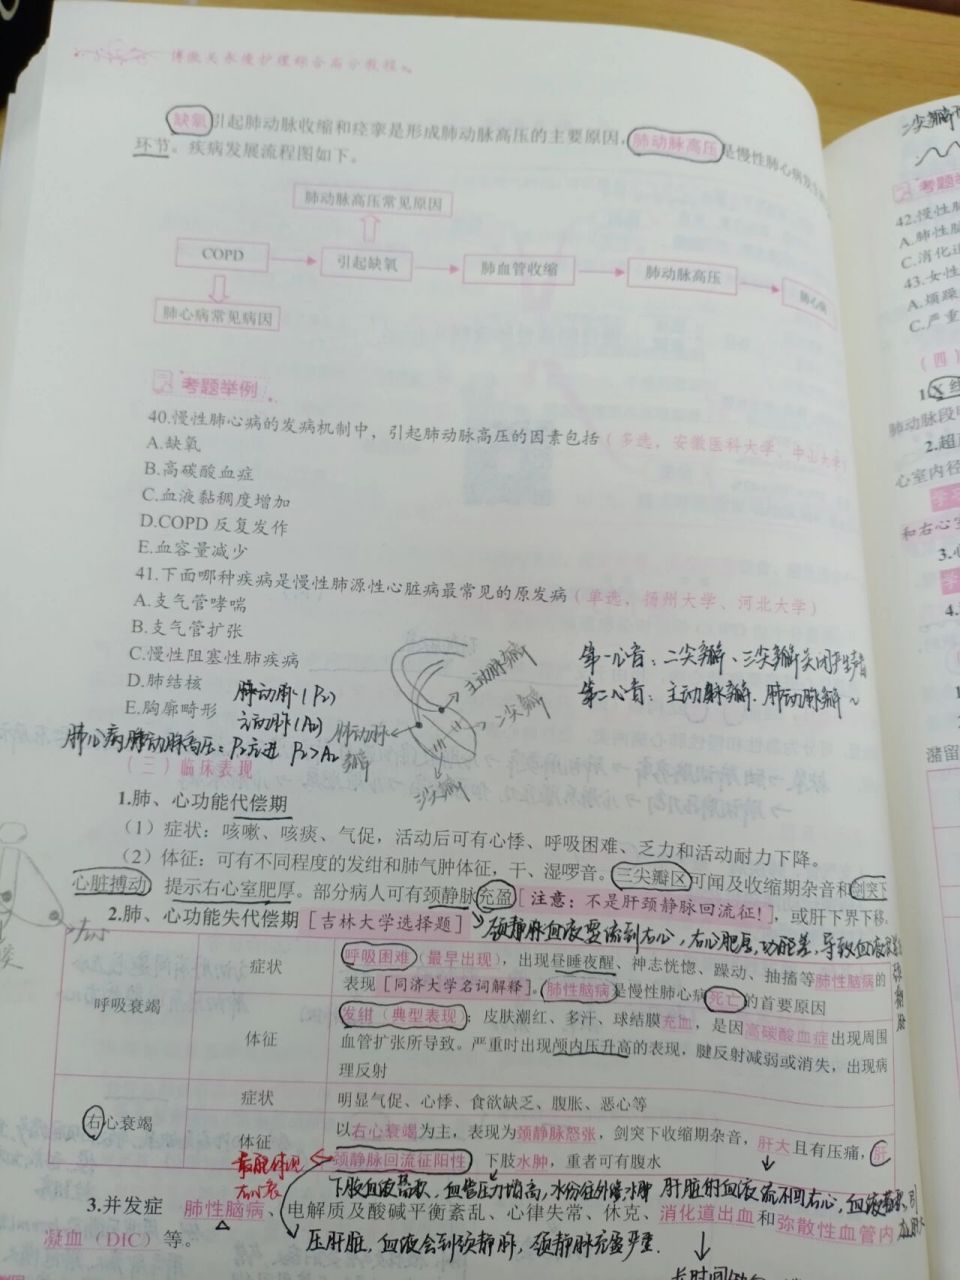 博傲天承曼护理综合高分教程
缺氧引起肺动脉收缩和痉挛是形成肺动脉高压的主要原因，肺动脉高压是慢性肺心病发
环节。疾病发展流程图如下。
肺动脉高压常见原因
COPD
引起缺氧
肺血管收缩
肺动脉高压
肺心病
肺心病常见病因
考题举例
40.慢性肺心病的发病机制中，引起肺动脉高压的因素包括(多选，安徽医科大学、中山大学)
A.缺氧
B.高碳酸血症
C.血液黏稠度增加
D.COPD 反复发作
E.血容量减少
41.下面哪种疾病是慢性肺源性心脏病最常见的原发病(单选，扬州大学、河北大学)
A.支气管哮喘
B.支气管扩张
C.慢性阻塞性肺疾病
D.肺结核
E.胸廓畸形
肺动脉(P₂)
主动脉(A₂)
肺心病肺动脉高压：P₂亢进 P₂>A₂
肺动脉瓣
主动脉瓣
二尖瓣
三尖瓣
第一心音：二尖瓣、三尖瓣关闭产生声音
第二心音：主动脉瓣、肺动脉瓣~
(三) 临床表现
1.肺、心功能代偿期
（1）症状：咳嗽、咳痰、气促，活动后可有心悸、呼吸困难、乏力和活动耐力下降。
（2）体征：可有不同程度的发绀和肺气肿体征，干、湿啰音。三尖瓣区可闻及收缩期杂音和剑突下
心脏搏动，提示右心室肥厚。部分病人可有颈静脉充盈[注意：不是肝颈静脉回流征!]，或肝下界下移。
2.肺、心功能失代偿期[吉林大学选择题]
颈静脉血液要流到右心，右心肥厚，功能差，导致血液
呼吸衰竭
症状
呼吸困难(最早出现)，出现昼睡夜醒、神志恍惚、躁动、抽搐等肺性脑病的
表现[同济大学名词解释]。肺性脑病是慢性肺心病死亡的首要原因
体征
发绀(典型表现)；皮肤潮红、多汗、球结膜充血，是因高碳酸血症出现周围
血管扩张所导致。严重时出现颅内压升高的表现，腱反射减弱或消失，出现病
理反射
右心衰竭
症状
明显气促、心悸、食欲缺乏、腹胀、恶心等
体征
以右心衰竭为主，表现为颈静脉怒张，剑突下收缩期杂音，肝大且有压痛，肝
颈静脉回流征阳性，下肢水肿，重者可有腹水
最能体现
右心衰
下肢血液蓄积，血管压力增高，水份往外走水肿
肝脏的血液流不回右心，血液蓄积，引
3.并发症 肺性脑病、电解质及酸碱平衡紊乱、心律失常、休克、消化道出血和弥散性血管内
凝血（DIC）等。
压肝脏，血液会到颈静脉，颈静脉充盈严重.
长时间
考题举
42.慢性肺
A.肺性脑
C.消化道
43.女性
A.烦躁
C.严重
(四)
1.X线
肺动脉段
2.超
心室内径
学习
和右心室
3.心
4.
潴留